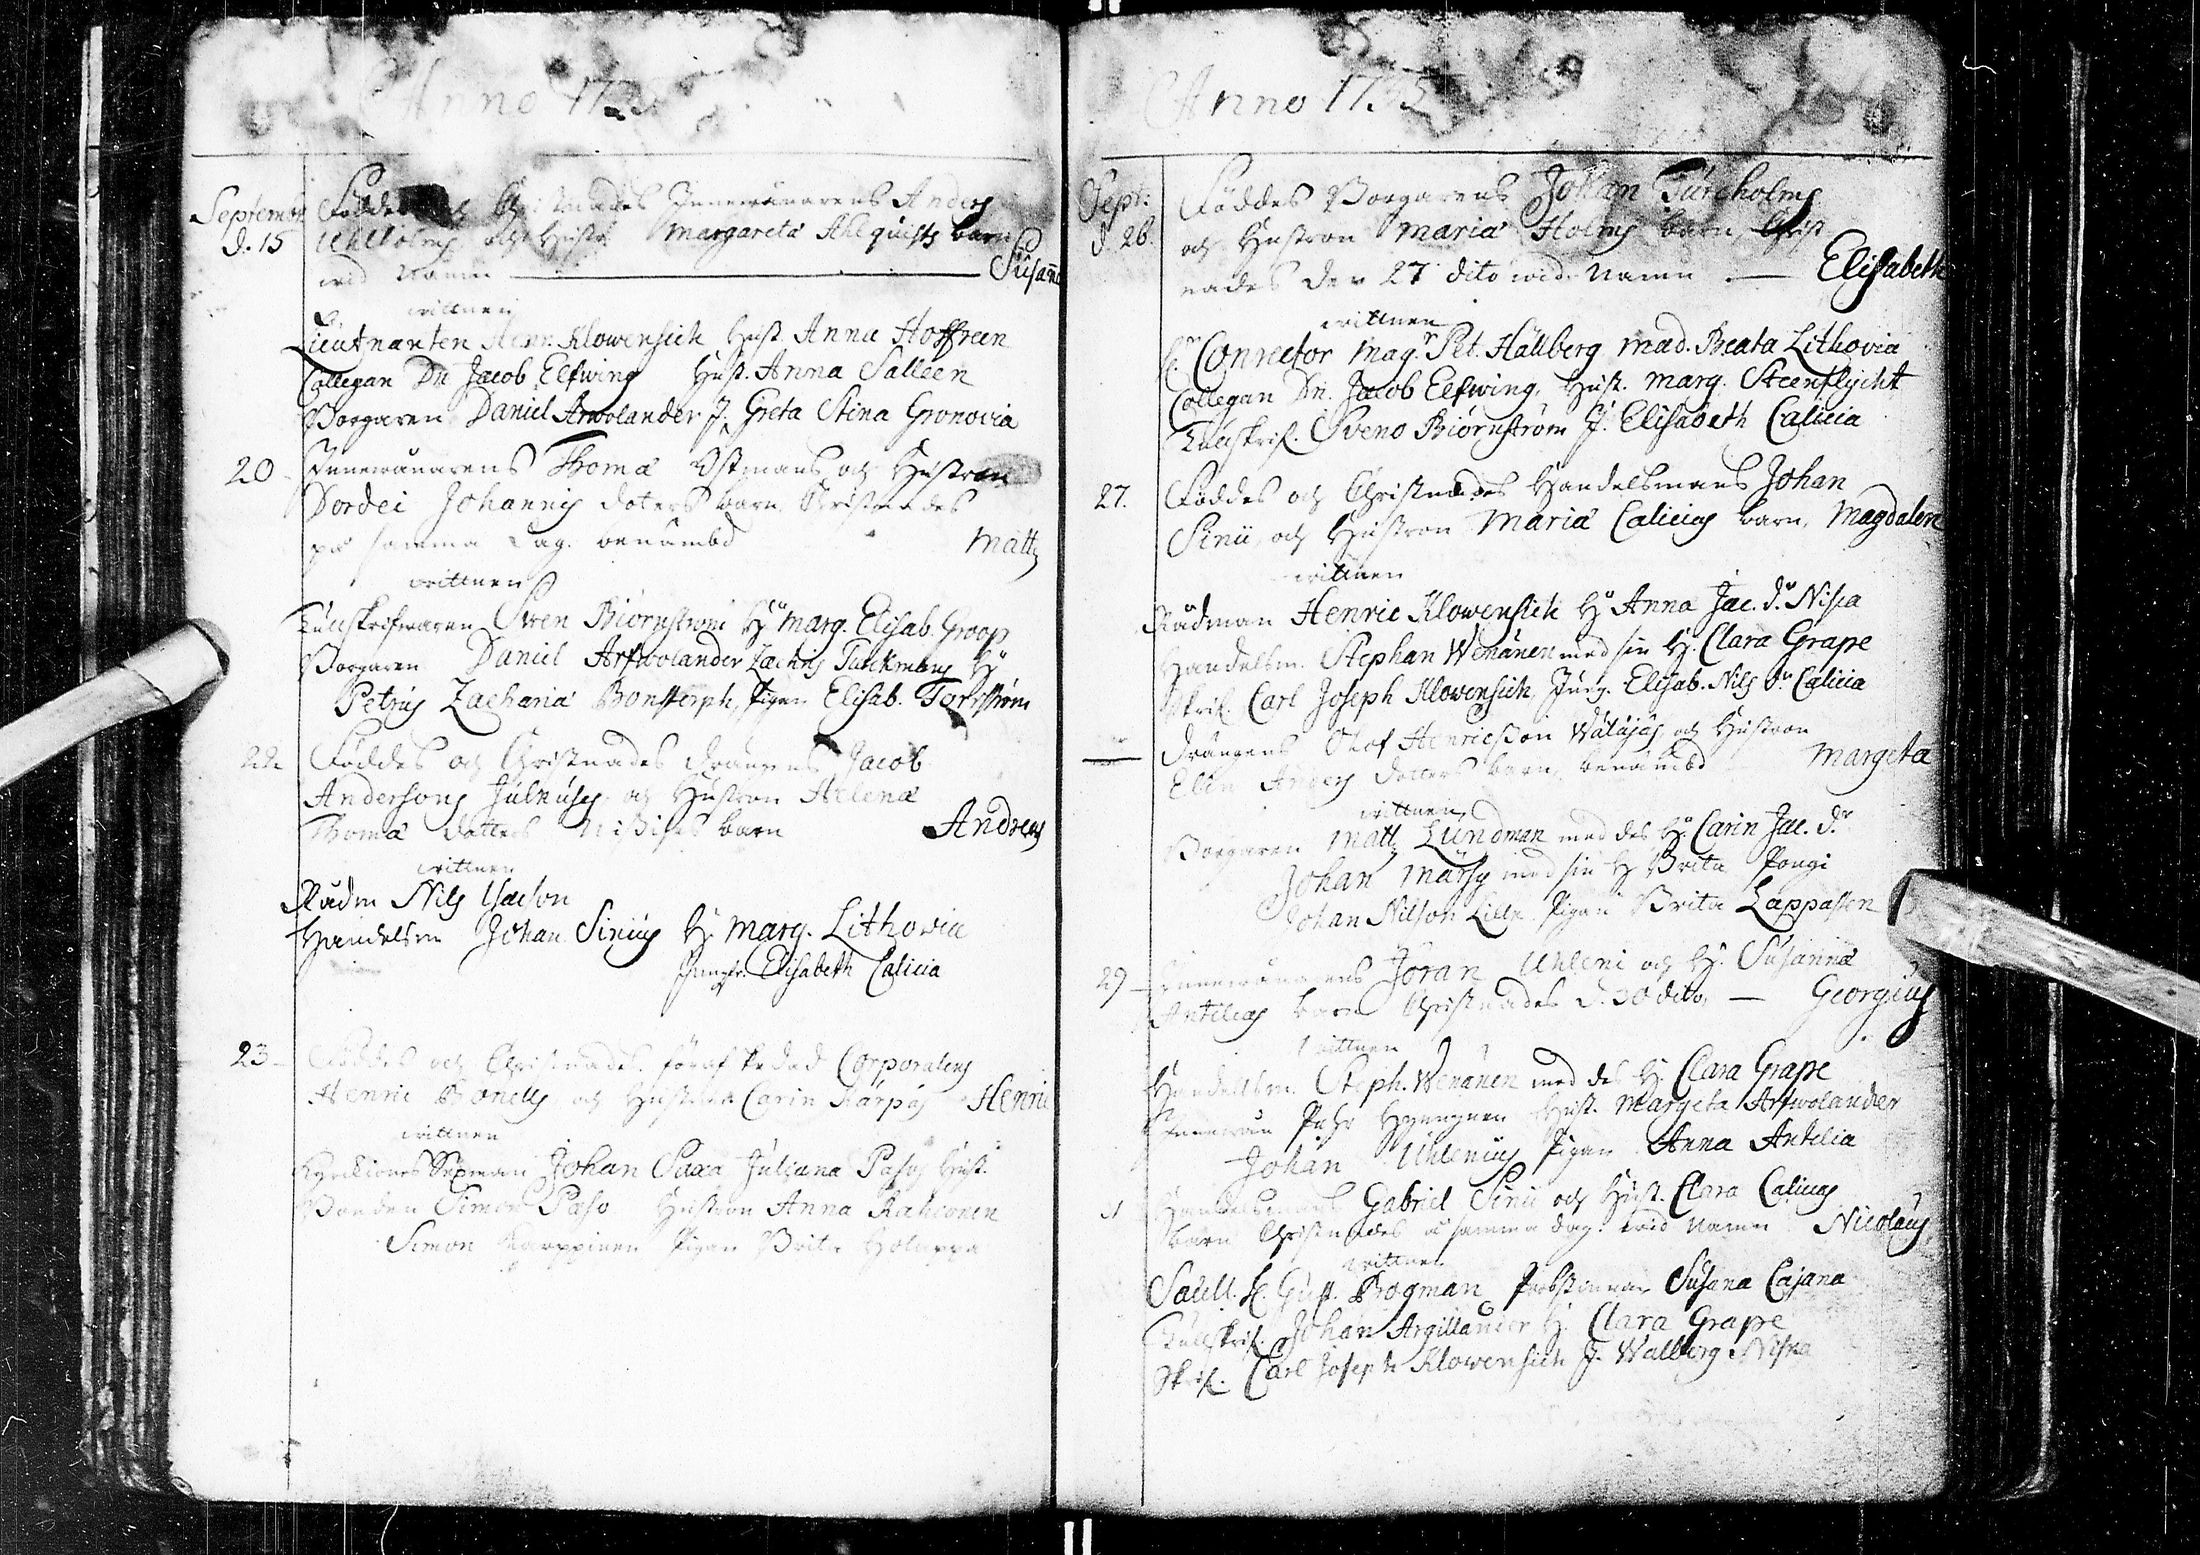 Anno 17
Septembr: Föddes och Christnades Innewånarens Anders
d. 15 Uhlholms och Hustr Margareta Ahlquists barn
wid Namn — Susanna
wittnen
Lieutnanten Henr. Klowensich Hust. Anna Hoffreen
Collegan Dn Jacob Elfwing Hust. Anna Salleen
Borgaren Daniel Arwolander J. Greta Stina Gronovia
20 Innewånarens Thomæ Östmans och Hustron
Dordei Johannis doters barn Christnades
på samma dag. benämbd Matts
wittnen
Sven Biörnström H. Marg. Elisab. Groop
Borgaren Daniel Arfwolander Zachris Turckmans H.
Petrus Zachariæ Bonstorph, Pigan Elisab. Forsström
22 Föddes och Christnades drängens Jacob
Andersons Julkusys och Hustron Helenæ
Thomæ dotters barn Andreas
wittnen
Rådm Nils Isacson
Handelsm Johan Sinius H. Marg. Lithovia
Jungfr. Elisabeth Calicia
23 Föddes och Christnades Corporalens
Henric Bonells och Hustrus Carin Kårpås Henric
wittnen
Johan Saxa Juliana Paso Hust.
Bonden Simon Paso Hustron Anna Rahconen
Simon Karppinen Pigan Brita Holappa
Anno 1735
Sept: Föddes Borgarens Johan Turcholms
d. 26. och Hustron Maria Holms barn Christ
nades den 27 dito wid Namn — Elisabeth
wittnen
Conrector Mag.r Pet. Hällberg Mad. Beata Lithovia
Collegan Dn. Jacob Elfwing, Hust. Marg. Steenflycht
Sveno Biörnström J. Elisabeth Calicia
27. Föddes och Christnades Handelsmans Johan
Sinii och Hustron Mariæ Calicias barn, Magdalen
wittnen
Rådman Henric Klowensich H. Anna Jac. dr Niska
Handelsm. Stephan Wänänen med sin H. Clara Grape
Skrif. Carl Joseph Klowensich, Jung. Elisab. Nils dr Calicia
— Drängens Olof Henricsson Wäläjäs och Hustron
Elin Anders dotters barn, benämbd Margeta
wittnen
Borgaren Matts Lundman med des H. Carin Jac. dr
Johan Mårsy med sin H Brita Pongi
Johan Nilson Lille Pigan Brita Lappalain
29 — Innewånarens Jöran Uhleni och H. Susannæ
Antilias barn Christnades d. 30 dito, — Georgius
wittnen
Handelsm. Steph. Wänänen med des H. Clara Grape
Innewån Pehr Hust. Margeta Arfwolander
Johan Uhlenius Pigan Anna Antelia
Handelsmans Gabriel Sinii och Hust. Clara Calicias
barn Christnades på samma dag. wid Namn Nicolaus
wittnen
Gust. Brogman Probstinnan Susana Cajana
Johan Argillander H. Clara Grape
Skrif. Carl Joseph Klowensich J. Walborg Niska